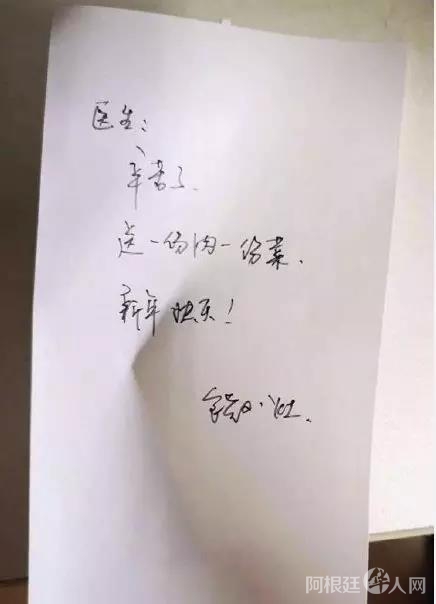 医生：
辛苦了.
送一份肉一份菜.
新年快乐！
小灶.
阿根廷华人网